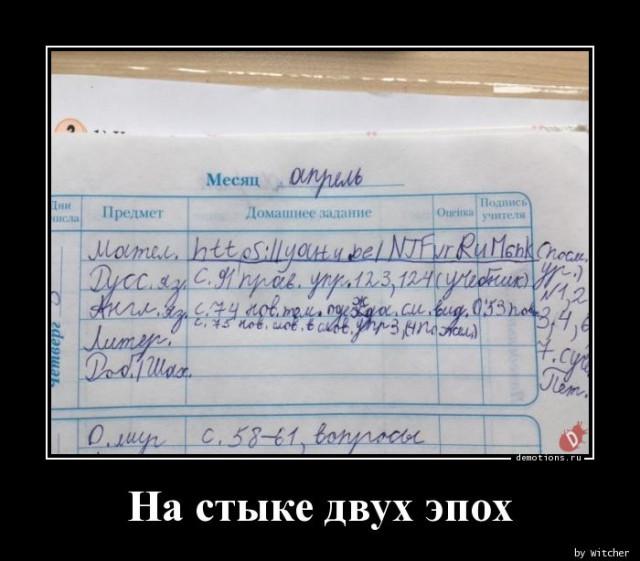 Месяц апрель
Дни
числа
Предмет
Домашнее задание
Оценка
Подпись
учителя
Четверг
Матем. https://youtu.be/NJFvrRuM6nk (посм.
Русс. яз. с. 91 прав. упр. 123, 124 (учебник)
№1,2
Англ. яз. с. 74 нов. см. вид. 0:53
3,4,6
с. 75 нов. слов. в слов. упр 3, (4 по жел.)
Литер.
7.
О. мир с. 58-61, вопросы
demotions.ru
На стыке двух эпох
by Witcher